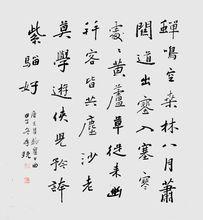 蟬鳴空桑林八月蕭
關道出塞入塞寒
處〻黃蘆草從來幽
并客皆共塵沙老
莫學遊俠兒矜誇
紫騮好